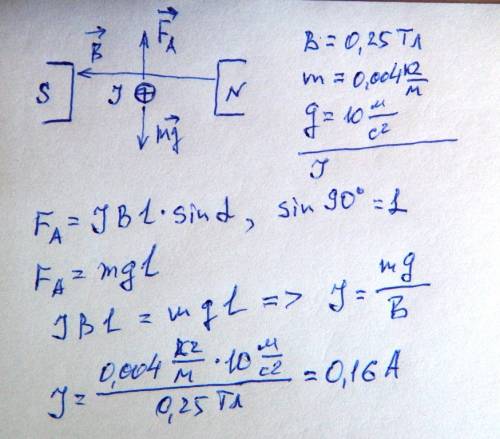 F⃗A
B⃗
S
J ⊕
N
m⃗g
B = 0,25 Тл
m = 0,004 кг/м
g = 10 м/с²
J
FA = JBl · sin α, sin 90° = 1
FA = mgl
JBl = mgl => J = mg/B
J = 0,004 кг/м · 10 м/с² / 0,25 Тл = 0,16 А